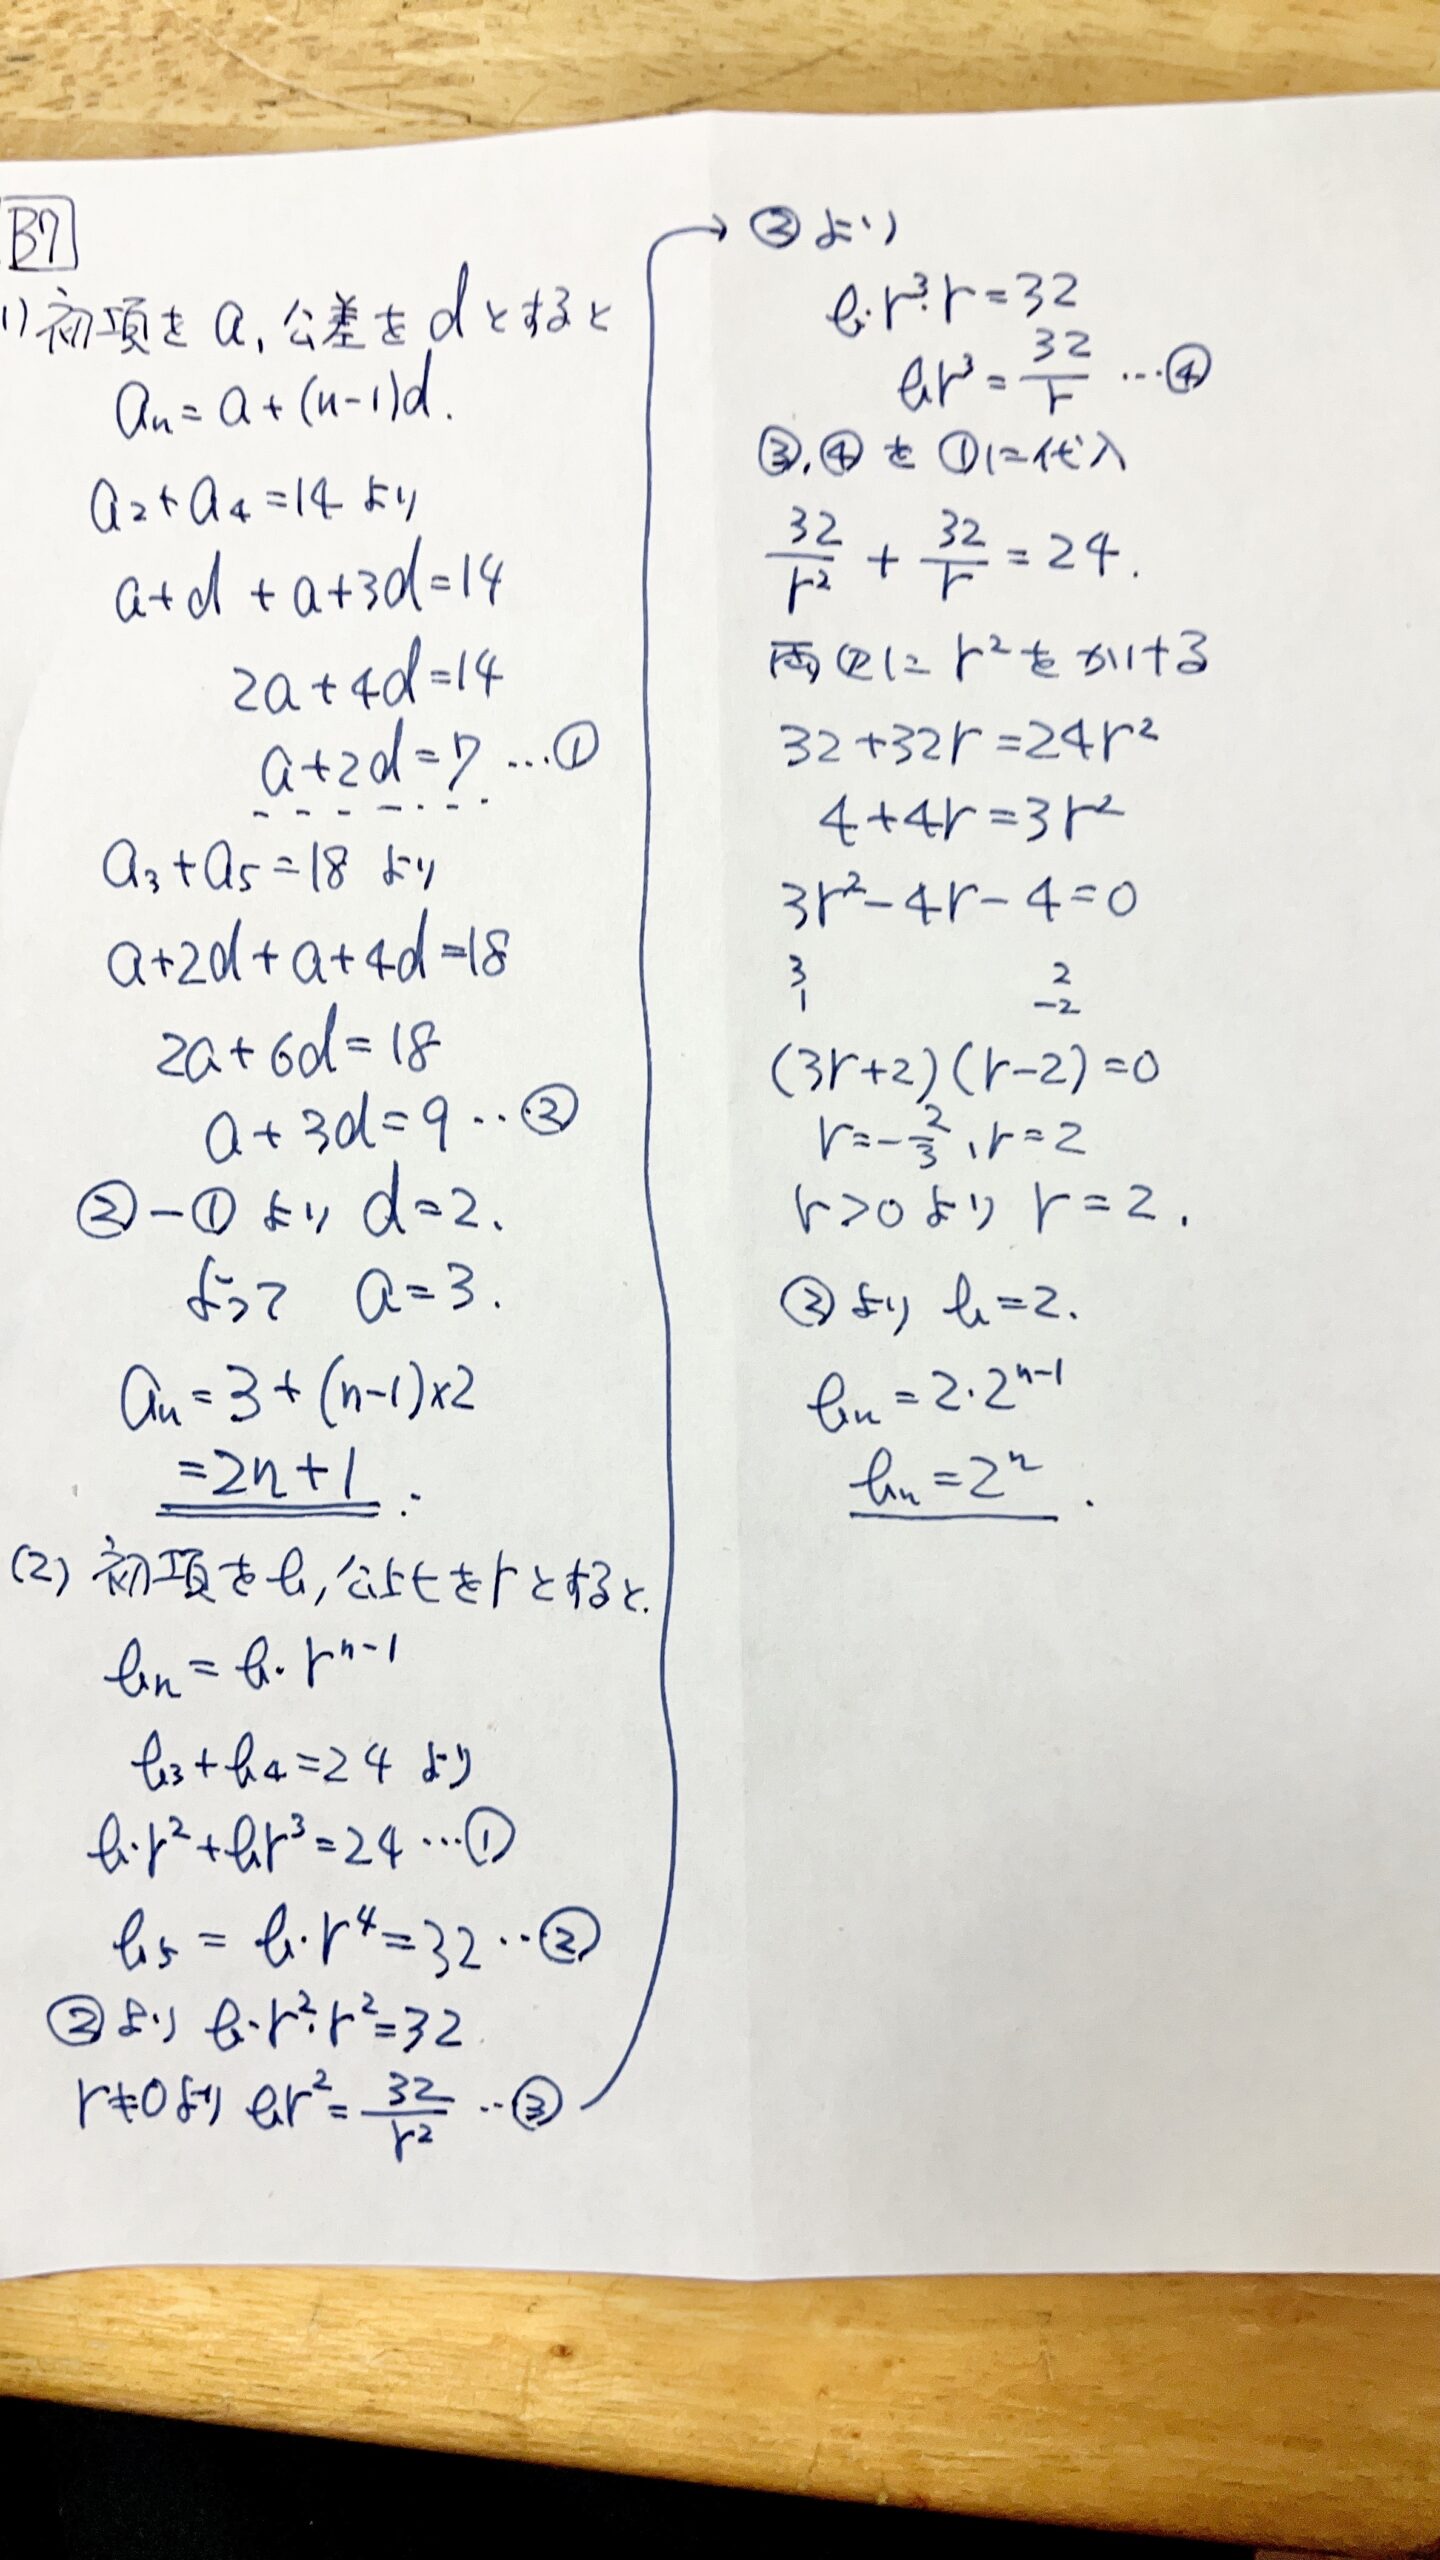 B7
1) 初項をa, 公差をdとすると
aₙ=a+(n-1)d.
a₂+a₄=14より
a+d+a+3d=14
2a+4d=14
a+2d=7 …①
a₃+a₅=18 より
a+2d+a+4d=18
2a+6d=18
a+3d=9 …②
②-① より d=2.
よって a=3.
aₙ=3+(n-1)×2
=2n+1
(2) 初項をb, 公比をrとすると.
bₙ=b·rⁿ⁻¹
b₃+b₄=24 より
b·r²+br³=24 …①
b₅=b·r⁴=32 …②
②より b·r²·r²=32
r≠0より br²=32/r² …③
②より
b·r³·r=32
br³=32/r …④
③,④を①に代入
32/r²+32/r=24.
両辺にr²をかける
32+32r=24r²
4+4r=3r²
3r²-4r-4=0
3 2
1 -2
(3r+2)(r-2)=0
r=-2/3, r=2
r>0より r=2.
②より b=2.
bₙ=2·2ⁿ⁻¹
bₙ=2ⁿ.